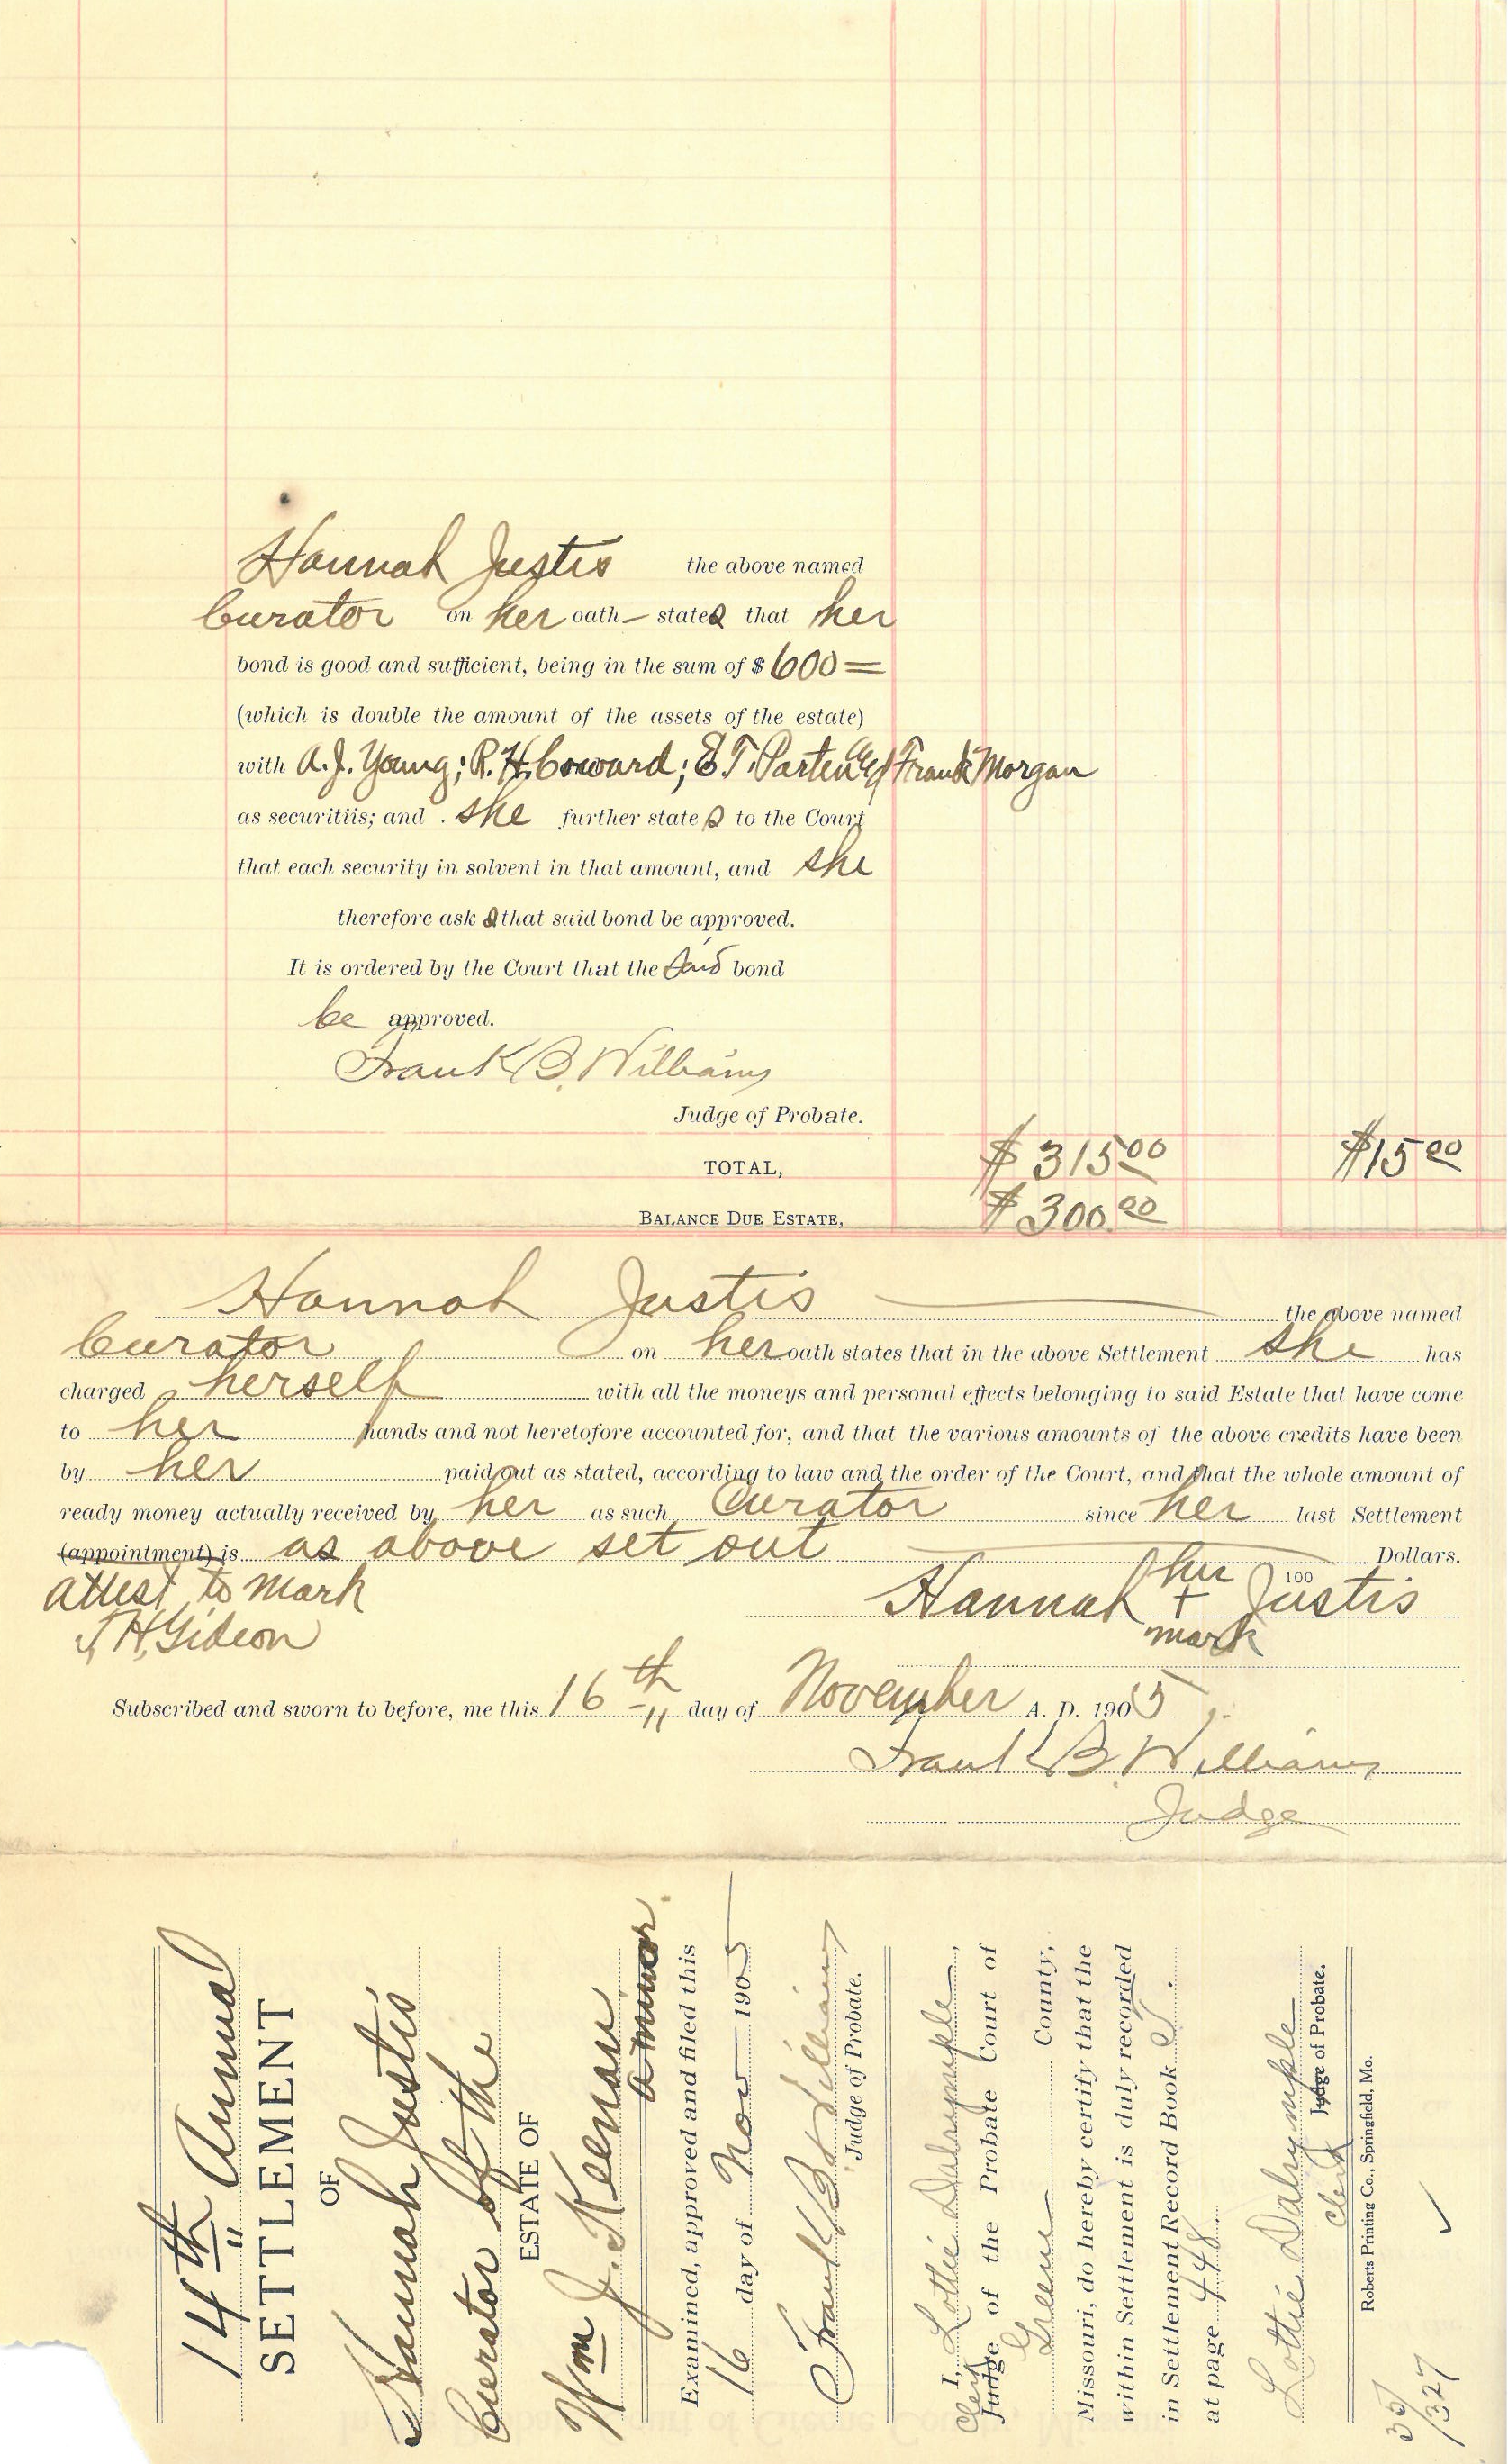 Hannah Justis the above named
Curator on her oath – states that her
bond is good and sufficient, being in the sum of $ 600 =
(which is double the amount of the assets of the estate)
with A. J. Young; R. H. Coward; E T. Parten and Frank Morgan
as securitiis; and she further states to the Court
that each security in solvent in that amount, and she
therefore asks that said bond be approved.
It is ordered by the Court that the said bond
be approved.
Frank B. Williams
Judge of Probate.
TOTAL, $ 315 00 $15 00
BALANCE DUE ESTATE, $ 300.00
Hannah Justis the above named
Curator on her oath states that in the above Settlement she has
charged herself with all the moneys and personal effects belonging to said Estate that have come
to her hands and not heretofore accounted for, and that the various amounts of the above credits have been
by her paid out as stated, according to law and the order of the Court, and that the whole amount of
ready money actually received by her as such Curator since her last Settlement
(appointment) is as above set out Dollars.
100
attest to mark
J H, Gideon
Hannah her + mark Justis
Subscribed and sworn to before, me this 16th day of November A. D. 1905.
Frank B. Williams
Judge
14th Annual
SETTLEMENT
OF
Hannah Justis
Curator of the
ESTATE OF
Wm J. Keenau
a minor.
Examined, approved and filed this
16 day of Nov 1905
Frank B Williams
Judge of Probate.
I, Lottie Dalrymple,
Clerk
Judge of the Probate Court of
Greene County,
Missouri, do hereby certify that the
within Settlement is duly recorded
in Settlement Record Book
at page 448.
Lottie Dalrymple
Clerk Judge of Probate.
Roberts Printing Co., Springfield, Mo.
35/327